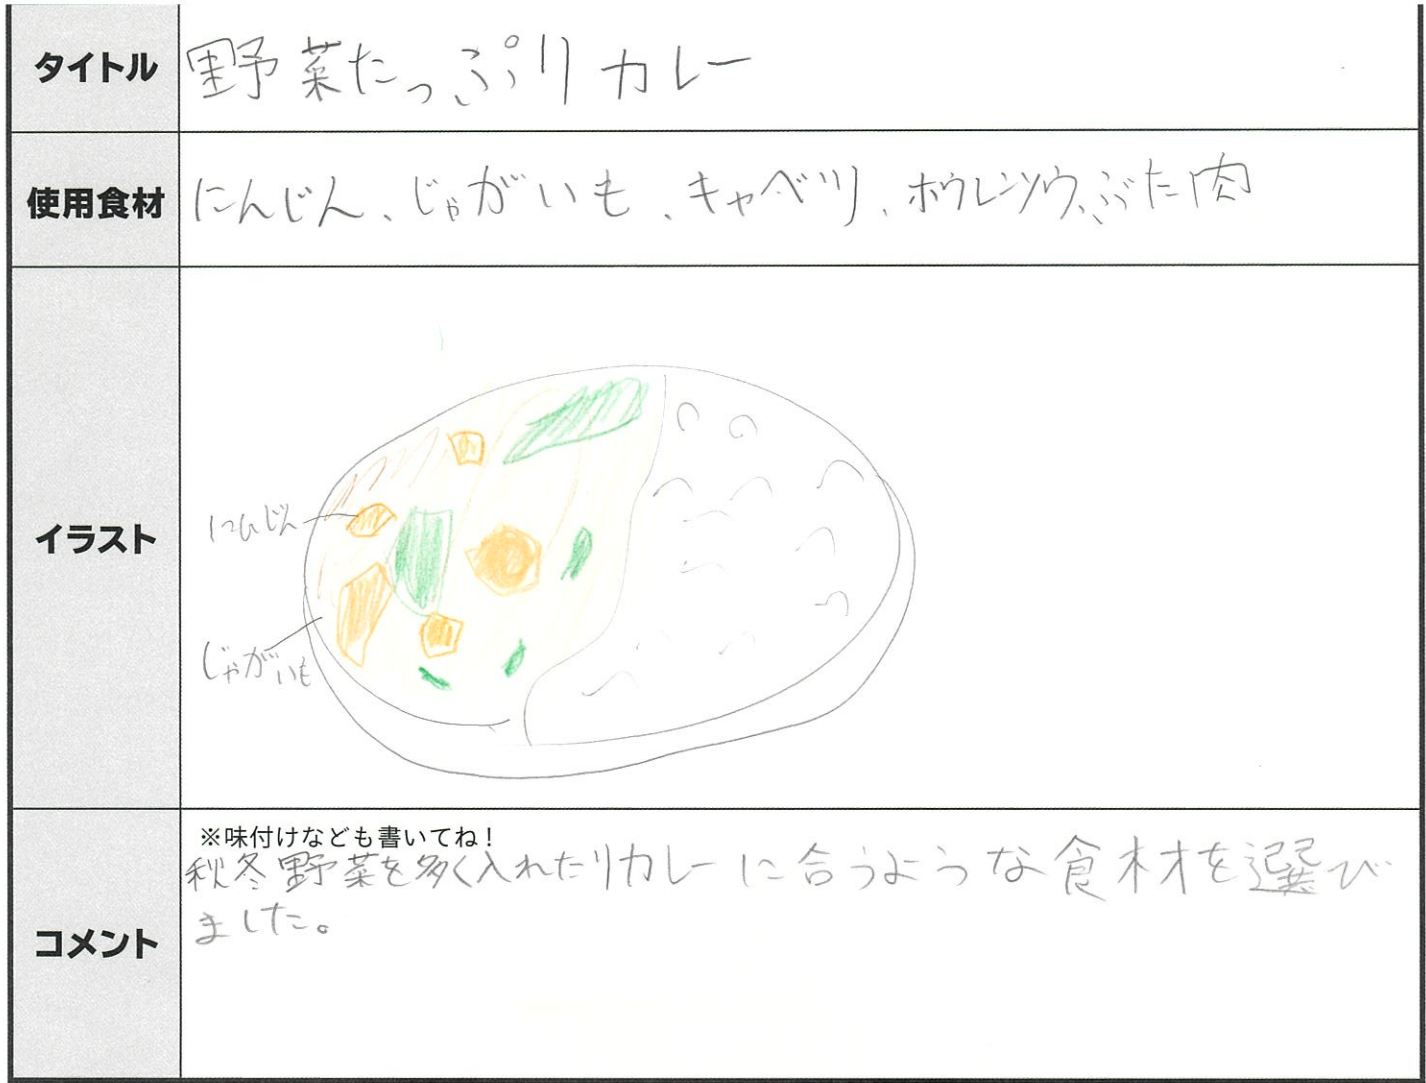 タイトル
野菜たっぷりカレー
使用食材
にんじん、じゃがいも、キャベツ、ホウレンソウ、ぶた肉
イラスト
にんじん
じゃがいも
コメント
※味付けなども書いてね！
秋冬野菜を多く入れたりカレーに合うような食材を選び
ました。